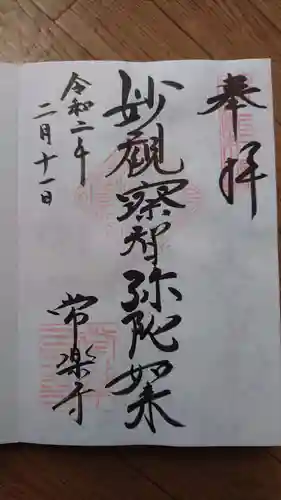 奉拝
妙觀察智弥陀如来
令和二年
二月十一日
常楽寺